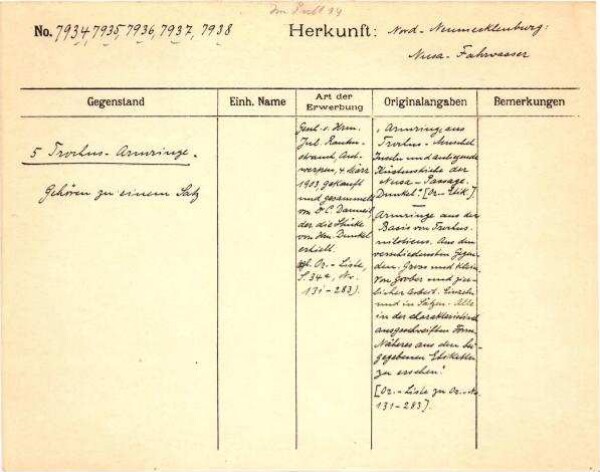 Im Pult 14
No. 7934, 7935, 7936, 7937, 7938
Herkunft: Nord-Neumecklenburg:
Nusa-Fahrwasser
Gegenstand
Einh. Name
Art der Erwerbung
Originalangaben
Bemerkungen
5 Trochus-Armringe.
Gehören zu einem Satz
werpen, 4. März
1903, gekauft
und gesammelt
der die Stücke
von Hrn. Dunkel
erhielt.
cf. Or.-Liste,
S. 34a, No.
131-283).
„Armringe aus
Trochus-Muschel
Inseln und anliegende
Küstenstriche der
Nusa-Passage.
Dunkel." [Or.-Etik.]
„Armringe aus der
Basis von Trochus
niloticus. Aus den
verschiedensten Gegen-
den. Gross und klein.
Von grober und zier-
licher Arbeit. Einzeln
und in Sätzen. Alle
in der charakteristisch
ausgeschweiften Form.
Näheres aus den bei-
gegebenen Etiketten
zu ersehen."
[Or.-Liste zu Or.-No.
131-283].